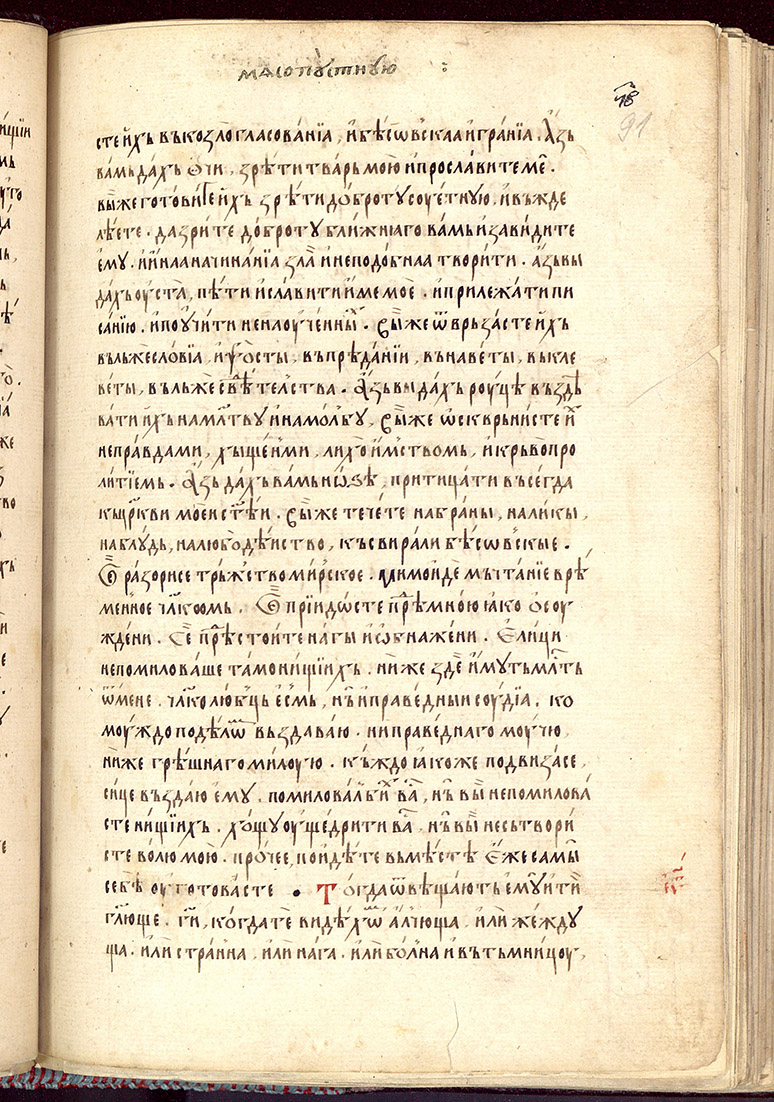 масопꙋстнꙋю :
91
сте ихъ въ козлогласованїа, и бѣсѡвскаа игранїа. Азь
вамь дах ѻчи, зрѣти тварь мою и прославите ме.
вы же готовите ихъ зрѣти доброту соуетную. и въжде
лѣете. да зрите доброту ближнїаго вамь и завидите
ему. и ина начинанїа зла и неподобнаа творити. азь вы
дахь оуста, пѣти и славити име мое. и прилежати пи
санїю. и поучити ненаоученны. вы же ѿврьзасте ихъ
въ льжесловїа, и въ прѣданїи, въ наветы, въ кле
веты, въ льже свѣтелства. Азь вы дахъ роуцѣ въздѣ
вати ихъ на млтву и на молбу, вы же ѡсквръннисте и
неправдами, хыщенми, лихоимством, и кръвопро
литїемь. Азь дахъ вамь нѡзѣ, притицати въсегда
къ цркви моеи стѣи. вы же течете на браны, на ликы,
на блудь, на любодѣиство, къ свирали бѣсѡвскые.
разорисе тръжство мирское. мимоиде мъчтанїе врѣ
менное члкоомь. прїидѡсте прѣ мною іако ѻсоу
ждени. Се прѣстоите нагы и ѡбнажени. Елици
не помиловаше тамо нищїихъ. ниже зде имуть млть
ѿ мене. члколюбць есмь, нъ и праведныи соудїа. ко
моуждо по дѣлѡ въздаваю. ни праведнаго моучю,
ниже грѣшнаго милоую. къждо іакоже подвизасе,
сице въздаю ему. помиловал бых ва, нъ вы не помилова
сте нищїихъ. хощу оущедрити ва, нъ вы не сътвори
сте волю мою. прочее, поидѣте въ мѣстѣ еже самы
себѣ оуготовасте • Тогда ѿвѣщають ему и ти
глюще. ги, когда те видѣхѡ алчюща, или жежду
ща. или странна, или нага. или болна и въ тьмницоу,